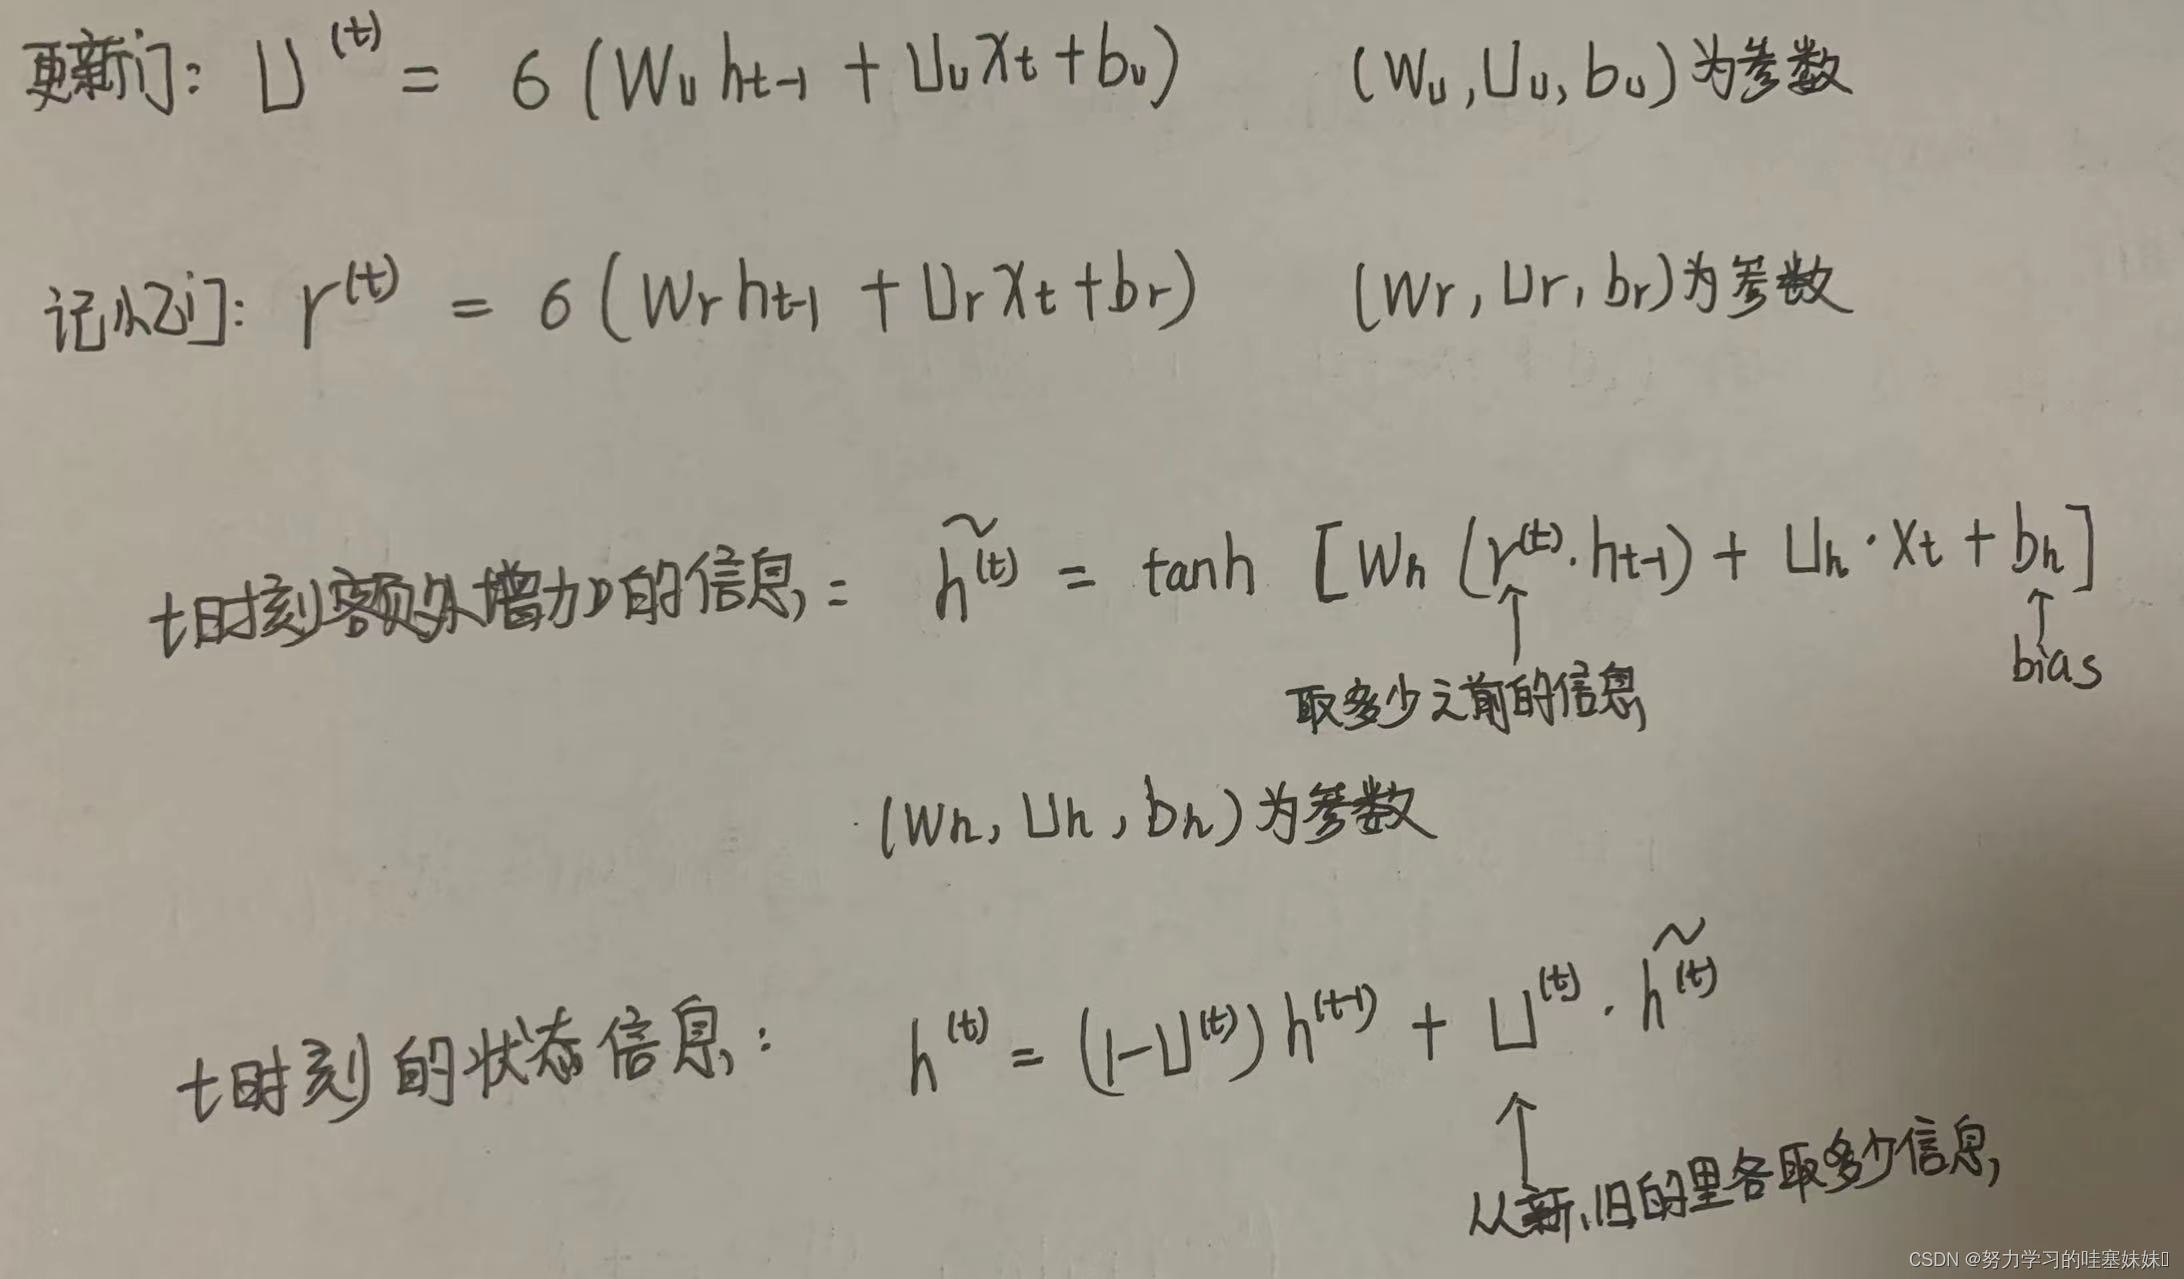 更新门: U^(t) = σ (W_u h_t-1 + U_u x_t + b_u) (W_u, U_u, b_u)为参数
记忆门: r^(t) = σ (W_r h_t-1 + U_r x_t + b_r) (W_r, U_r, b_r)为参数
t时刻额外增加的信息: h̃^(t) = tanh [W_h (r^(t)·h_t-1) + U_h · x_t + b_h]
取多少之前的信息
bias
(W_h, U_h, b_h)为参数
t时刻的状态信息: h^(t) = (1-U^(t)) h^(t-1) + U^(t) · h̃^(t)
从新、旧的里各取多少信息
CSDN @努力学习的哇塞妹妹